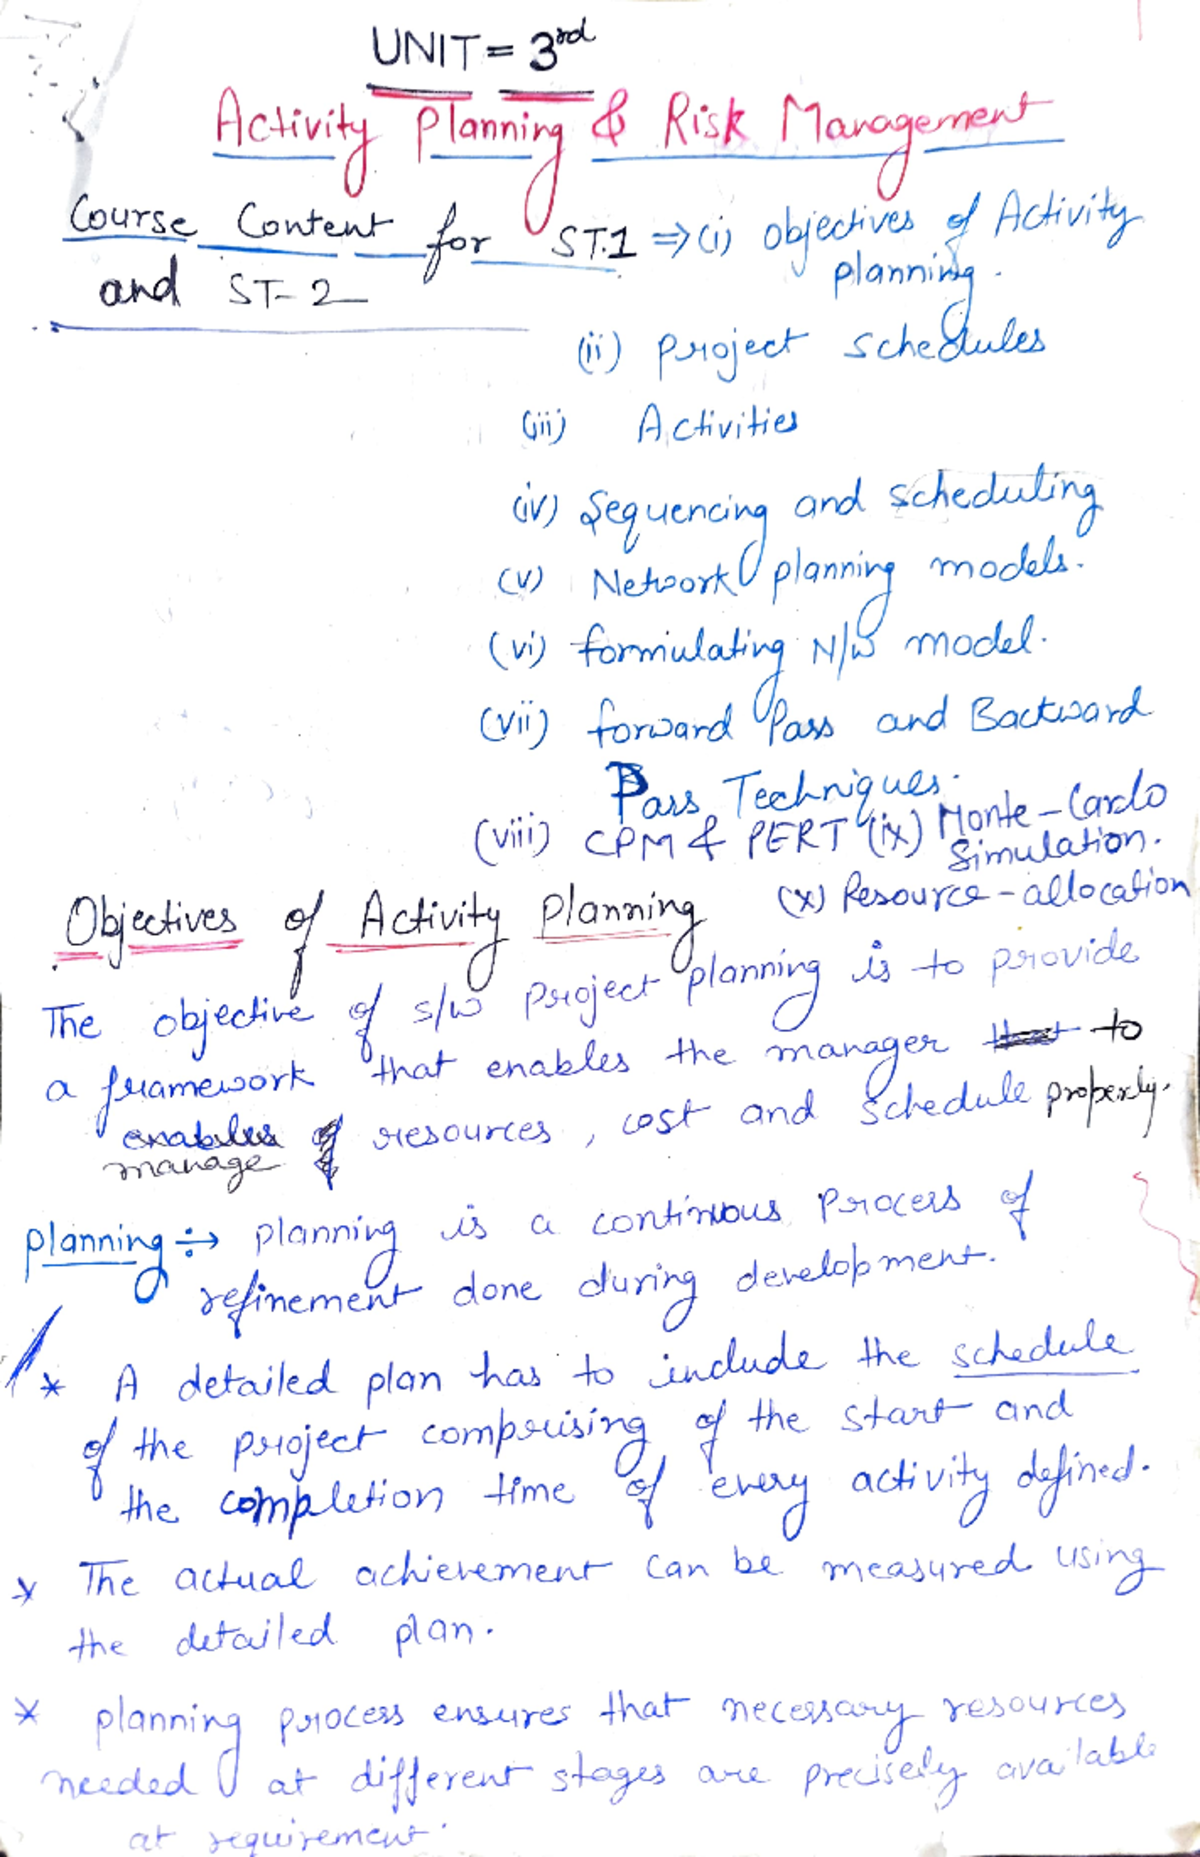 UNIT = 3rd
Activity Planning & Risk Management
Course Content for ST.1 ⇒ (i) objectives of Activity
and ST-2 planning.
(ii) Project schedules
(iii) Activities
(iv) Sequencing and scheduling
(v) Network planning models.
(vi) formulating N/W model.
(vii) forward Pass and Backward
Pass Techniques.
(viii) CPM & PERT (ix) Monte-Carlo
Simulation.
(x) Resource-allocation
Objectives of Activity Planning
The objective of s/w project planning is to provide
a framework that enables the manager to
manage resources, cost and schedule properly.
planning ÷→ planning is a continous process of
refinement done during development.
* A detailed plan has to include the schedule
of the project comprising of the start and
the completion time of every activity defined.
* The actual achievement can be measured using
the detailed plan.
* planning process ensures that necessary resources
needed at different stages are precisely available
at requirement.